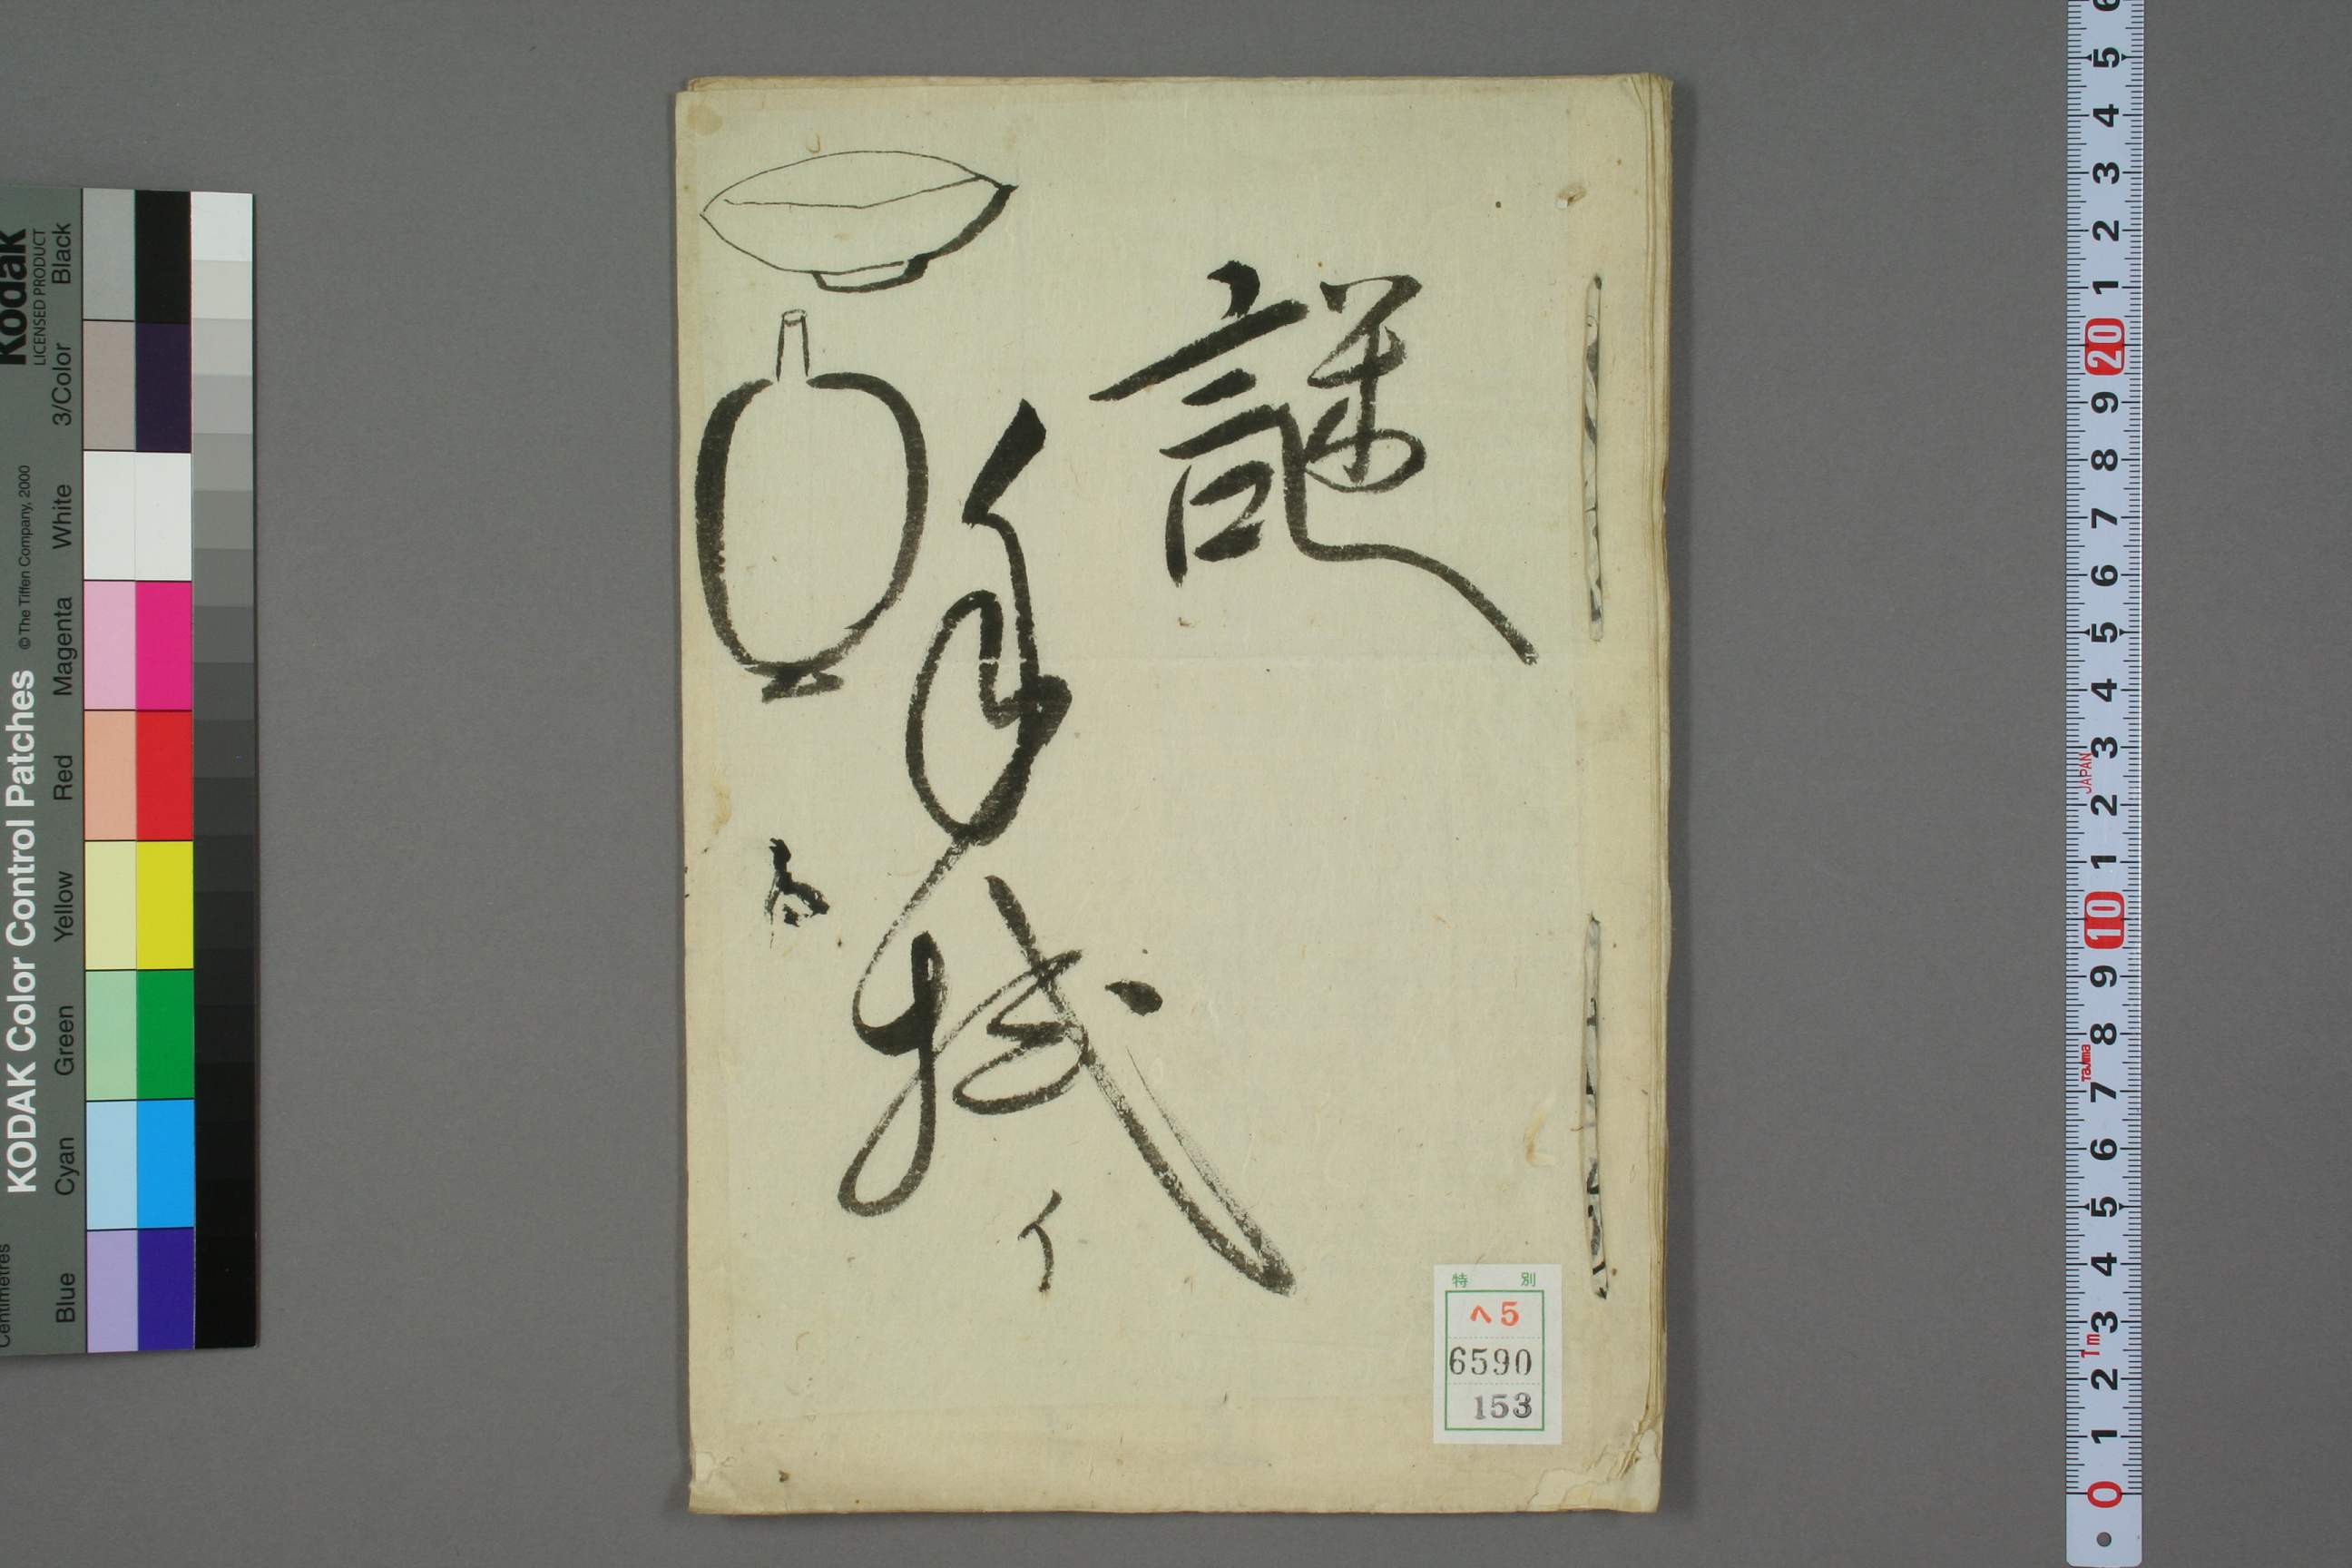 謎
手拭
イ
特別
ヘ5
6590
153
KODAK Color Control Patches
© The Tiffen Company, 2000
Kodak
LICENSED PRODUCT
Centimetres
Blue Cyan Green Yellow Red Magenta White 3/Color Black
6 5 4 3 2 1 20 9 8 7 6 5 4 3 2 1 10 9 8 7 6 5 4 3 2 1 0
JAPAN
Tajima
1m